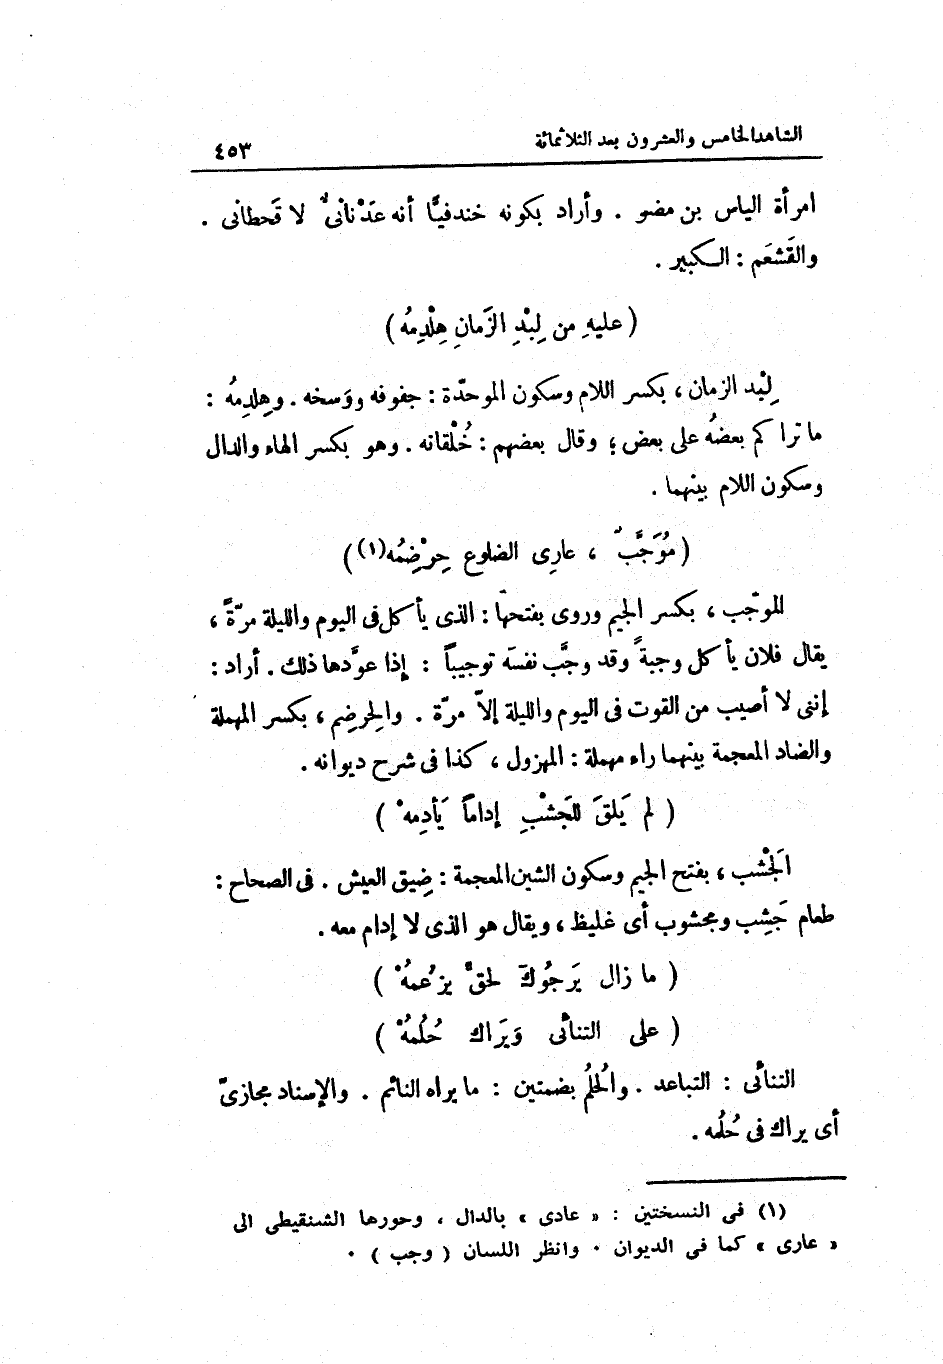 الشاهد الخامس والعشرون بعد الثلاثمائة ٤٥٣
امرأة الياس بن مضر . وأراد بكونه خندفيًّا أنه عَدْنانىٌّ لا قَحطانى .
والقَشعَم : الكبير .
( عليهِ من لِبْدِ الزَمانِ هِلْدِمُه )
لِبْد الزمان ، بكسر اللام وسكون الموحّدة : جفوفه ووَسخه . وهِلدِمُه :
ما تراكم بعضهُ على بعض ؛ وقال بعضهم : خُلْقانه . وهو بكسر الهاء والدال
وسكون اللام بينهما .
( مُوَجَّبٌ ، عارِى الضلوع حِرْضِمُه(١) )
الموجّب ، بكسر الجيم وروى بفتحها : الذى يأكل فى اليوم والليلة مرّةً ،
يقال فلان يأكل وجبةً وقد وجَّب نفسَه توجيباً : إذا عوَّدها ذلك . أراد :
إننى لا أصيب من القوت فى اليوم والليلة إلاّ مرّة . والحِرضِم ، بكسر المهملة
والضاد المعجمة بينهما راء مهملة : المهزول ، كذا فى شرح ديوانه .
( لم يَلقَ للجَشْبِ إداماً يَأدِمهْ )
الجَشْب ، بفتح الجيم وسكون الشين المعجمة : ضِيق العيش . فى الصحاح :
طعام جَشِب ومجشوب أى غليظ ، ويقال هو الذى لا إدام معه .
( ما زال يَرجُوكَ لحقٍّ يزعُمهُْ )
( على التنائى وَيَراك حُلُمهُْ )
التنائى : التباعد . والحُلُم بضمتين : ما يراه النائم . والإسناد مجازىّ
أى يراك فى حُلُمه .
(١) فى النسختين : « عادى » بالدال ، وحورها الشنقيطى الى
« عارى » كما فى الديوان . وانظر اللسان ( وجب ) .